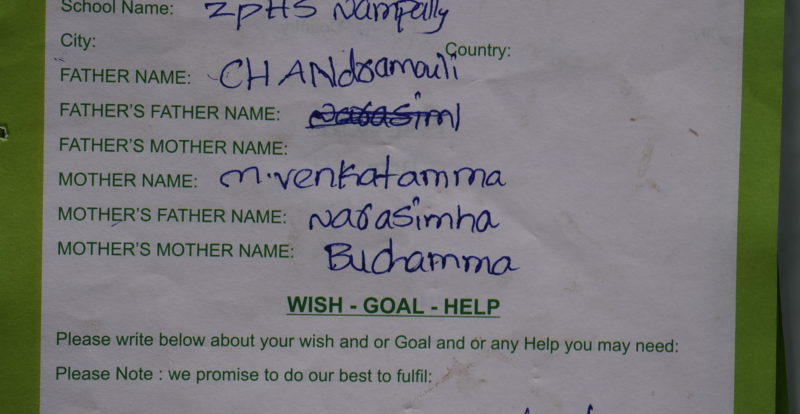 School Name: ZPHS Nampally
City: Country:
FATHER NAME: CHANdramouli
FATHER'S FATHER NAME:
FATHER'S MOTHER NAME:
MOTHER NAME: M.venkatamma
MOTHER'S FATHER NAME: Narasimha
MOTHER'S MOTHER NAME: Buchamma
WISH - GOAL - HELP
Please write below about your wish and or Goal and or any Help you may need:
Please Note : we promise to do our best to fulfil: